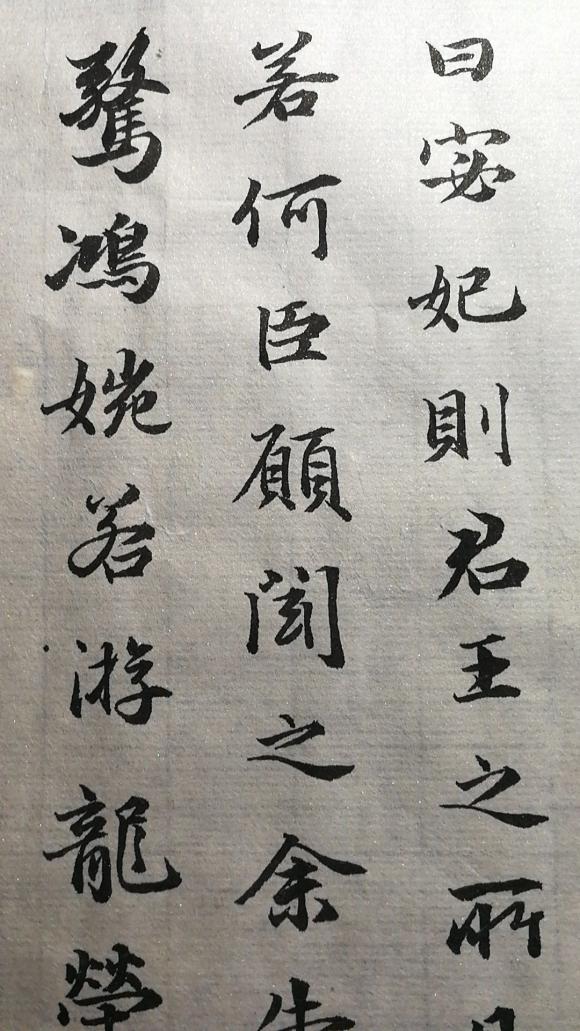 曰宓妃則君王之所
若何臣願聞之余
驚鴻婉若游龍榮